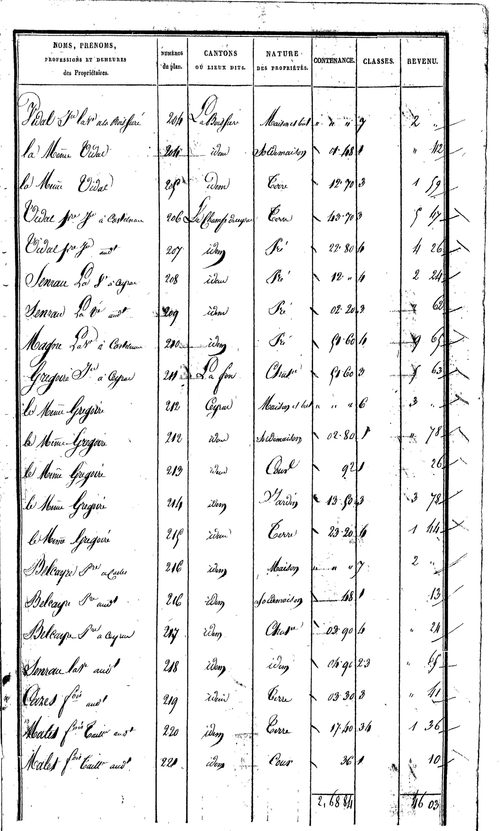 NOMS, PRÉNOMS, PROFESSIONS ET DEMEURES des Propriétaires. NUMÉROS du plan. CANTONS OU LIEUX DITS. NATURE DES PROPRIÉTÉS. CONTENANCE. CLASSES. REVENU.
Vidal Jn la ve 204 La Boissiere Maison et bat " " " 7 2 "
la Même Vidal 204 idem Sol de maison 01.48 1 " 42
la Même Vidal 205 idem Terre 12.70 3 1 59
Vidal pre Jn à 206 Terre 43.70 3 5 47
Vidal pre Jn audt 207 idem Pré 22.80 4 4 26
Senrau La Ve à Ceyrac 208 idem Pré 12 " 4 2 24
Senrau La Ve audt 209 idem Pré 02.20 3 " 62
Magne La Ve à 210 idem Pré 51.60 4 9 65
Gregoire Jn à Ceyrac 211 La fon Chatre 51.60 3 5 63
le Même Gregoire 212 Ceyrac Maison et bat " " " 6 3 "
le Même Gregoire 212 idem Sol de maison 02.80 1 " 78
le Même Gregoire 213 idem Cour 92 1 26
le Même Gregoire 214 idem Jardin 13.50 3 3 78
le Même Gregoire 215 idem Terre 23.20 4 1 44
Belcayre Pre à 216 idem Maison " " " 7 2 "
Belcayre Pre audt 216 idem Sol de maison 48 1 13
Belcayre Pre à Ceyrac 217 idem Chatre 03.90 4 " 24
Senrau la ve audt 218 idem idem 04.96 23 " 65
fois audt 219 idem Terre 03.30 3 " 41
Males fois audt 220 idem Terre 17.40 34 1 36
Males fois audt 221 idem Cour 36 1 10
2,68 84 46 03